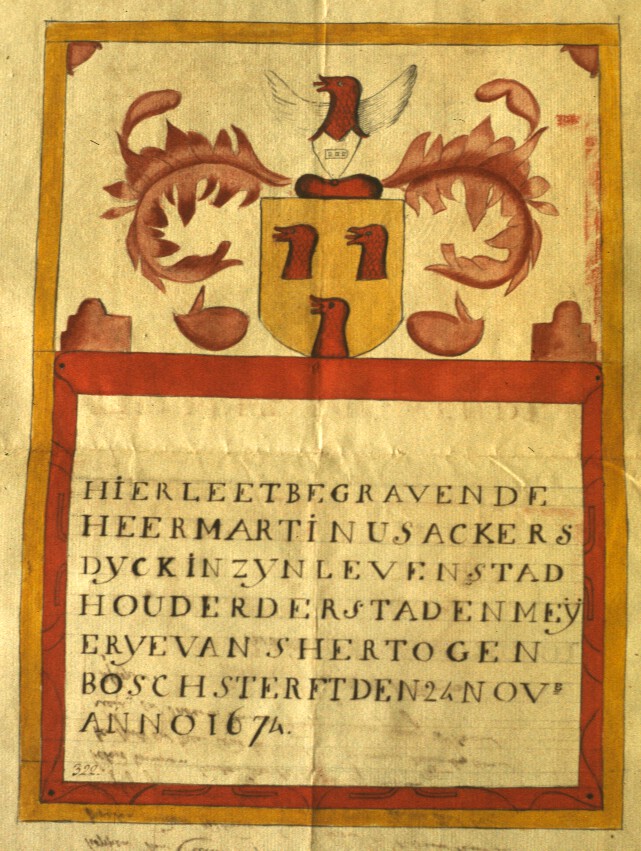 HIERLEETBEGRAVENDE
HEERMARTINUSACKERS
DYCKINZYNLEVENSTAD
HOUDERDERSTADENMEŸ
ERYEVANSHERTOGEN
BOSCHSTERFTDEN24NOVB
ANNO1674.
322.